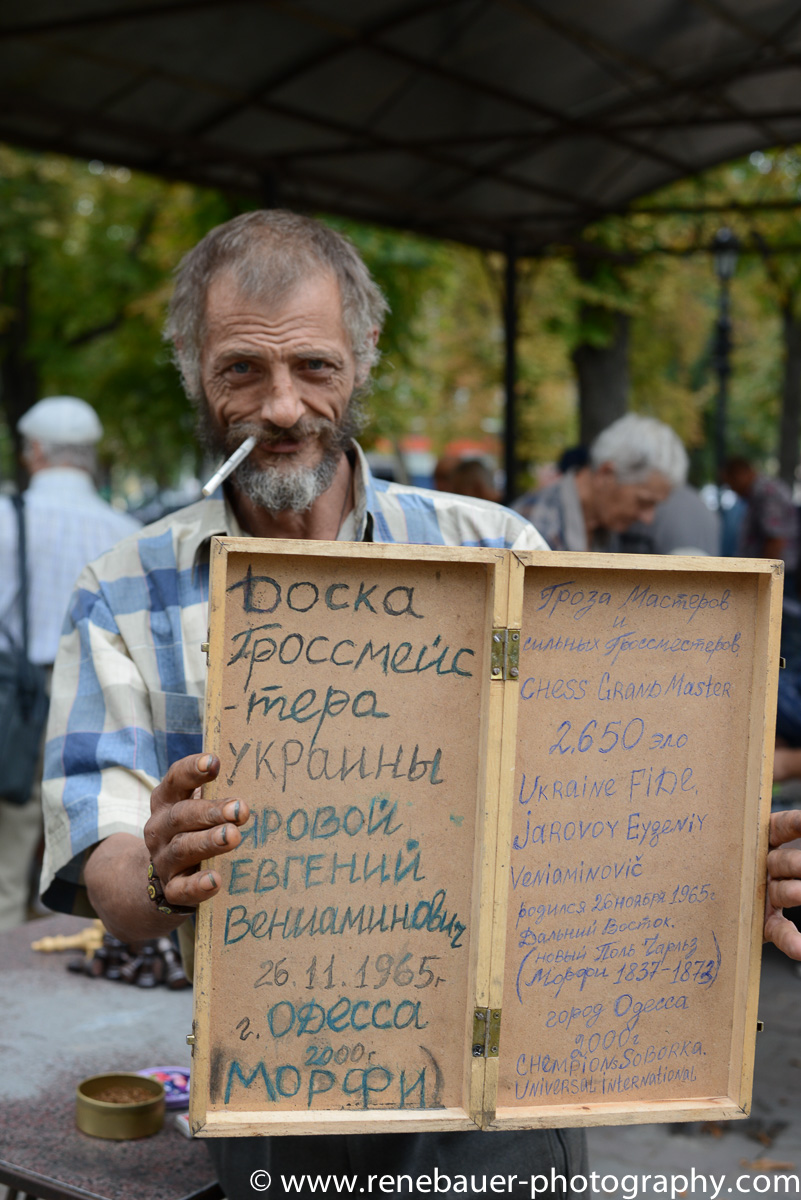 Доска
Гроссмейс
-тера
Украины
Яровой
Евгений
Вениаминович
26.11.1965г
г. Одесса
2000г
Морфи)
Гроза Мастеров
и
сильных Гроссместеров,
CHESS GRAND Master
2.650 эло
UKRAINE FIDE,
JAROVOY EYGENIY
VENIAMINOVIČ
родился 26 ноября 1965г
Дальний Восток.
(новый Поль Чарльз
Морфи 1837-1873)
город Одесса
2000г
CHEMPIONS SOBORKA.
UNIVERSAL INTERNATIONAL
© www.renebauer-photography.com